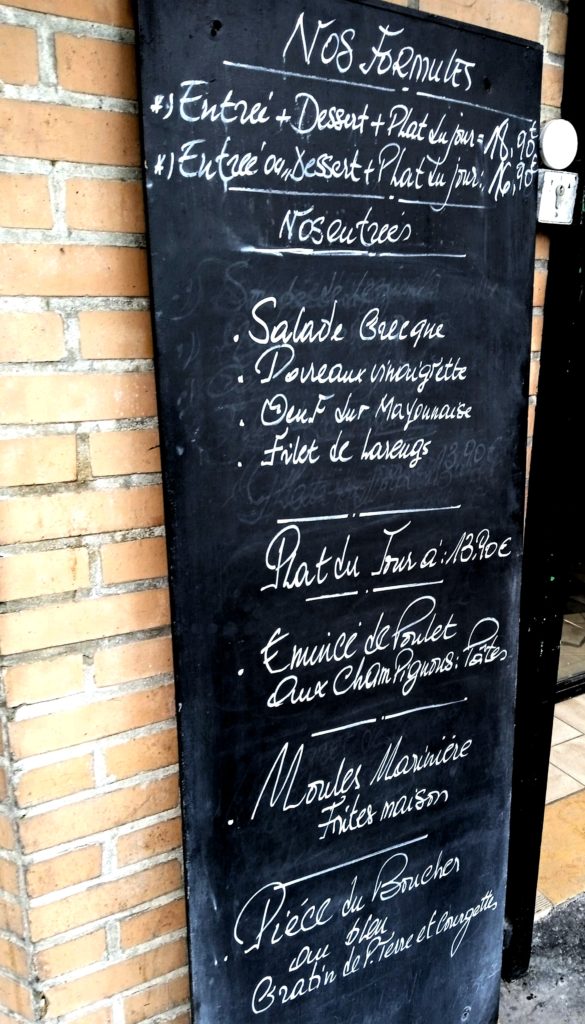 Nos Formules
*) Entreé + Dessert + Plat du jour = 18,90€
*) Entreé ou Dessert + Plat du jour: 16,90€
Nos entreés
. Salade Grecque
. Poireaux vinaigrette
. Oeuf dur Mayonnaise
. Filet de harengs
Plat du Jour à: 13.90€
. Emincé de Poulet
aux Champignons: Pâtes
. Moules Marinière
Frites maison
.. Piéce du Boucher
au bleu
Gratin de P. Terre et Courgettes